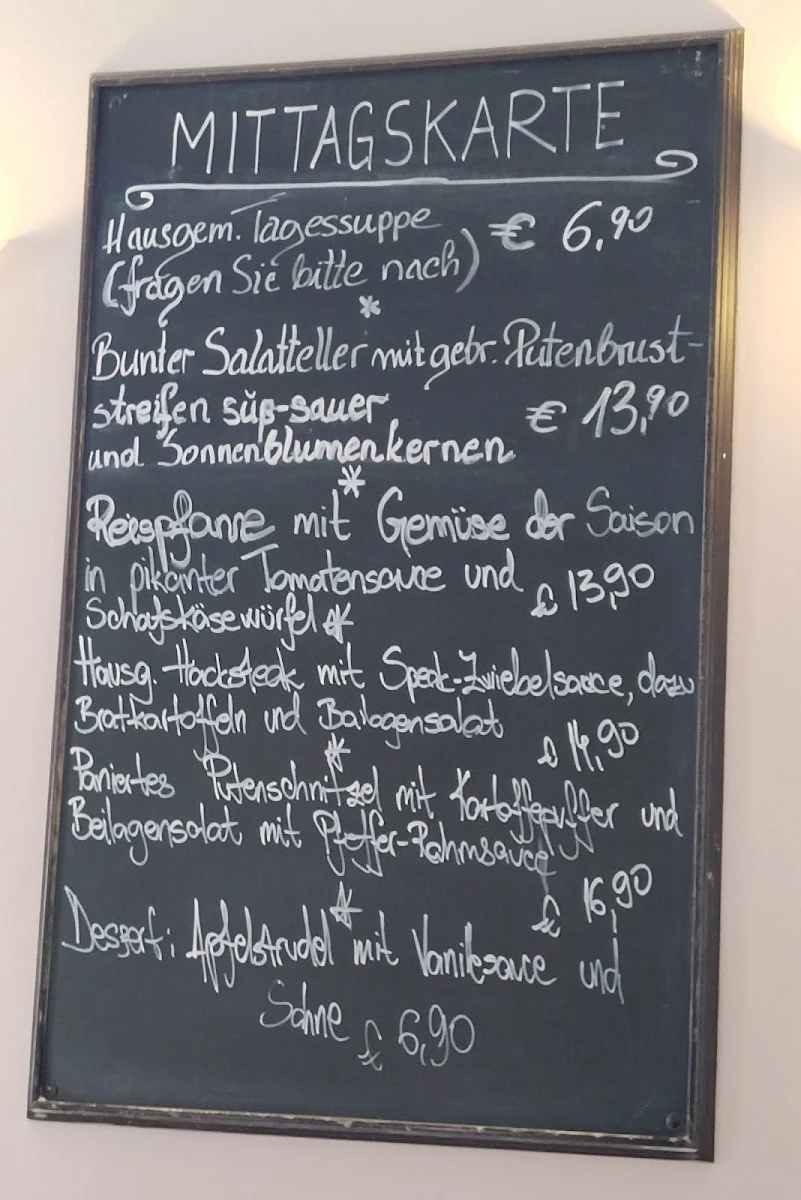 MITTAGSKARTE
Hausgem. Tagessuppe € 6,90
(fragen Sie bitte nach)
*
Bunter Salatteller mit gebr. Putenbrust-
streifen süß-sauer € 13,90
und Sonnenblumenkernen
*
Reispfanne mit Gemüse der Saison
in pikanter Tomatensauce und € 13,90
Schafskäsewürfel *
Hausg. Hacksteak mit Speck-Zwiebelsauce, dazu
Bratkartoffeln und Bailagensalat € 14,90
*
Paniertes Putenschnitzel mit Kartoffepuffer und
Beilagensalat mit Pfeffer-Rahmsauce
€ 16,90
*
Dessert: Apfelstrudel mit Vanilesauce und
Sahne € 6,90